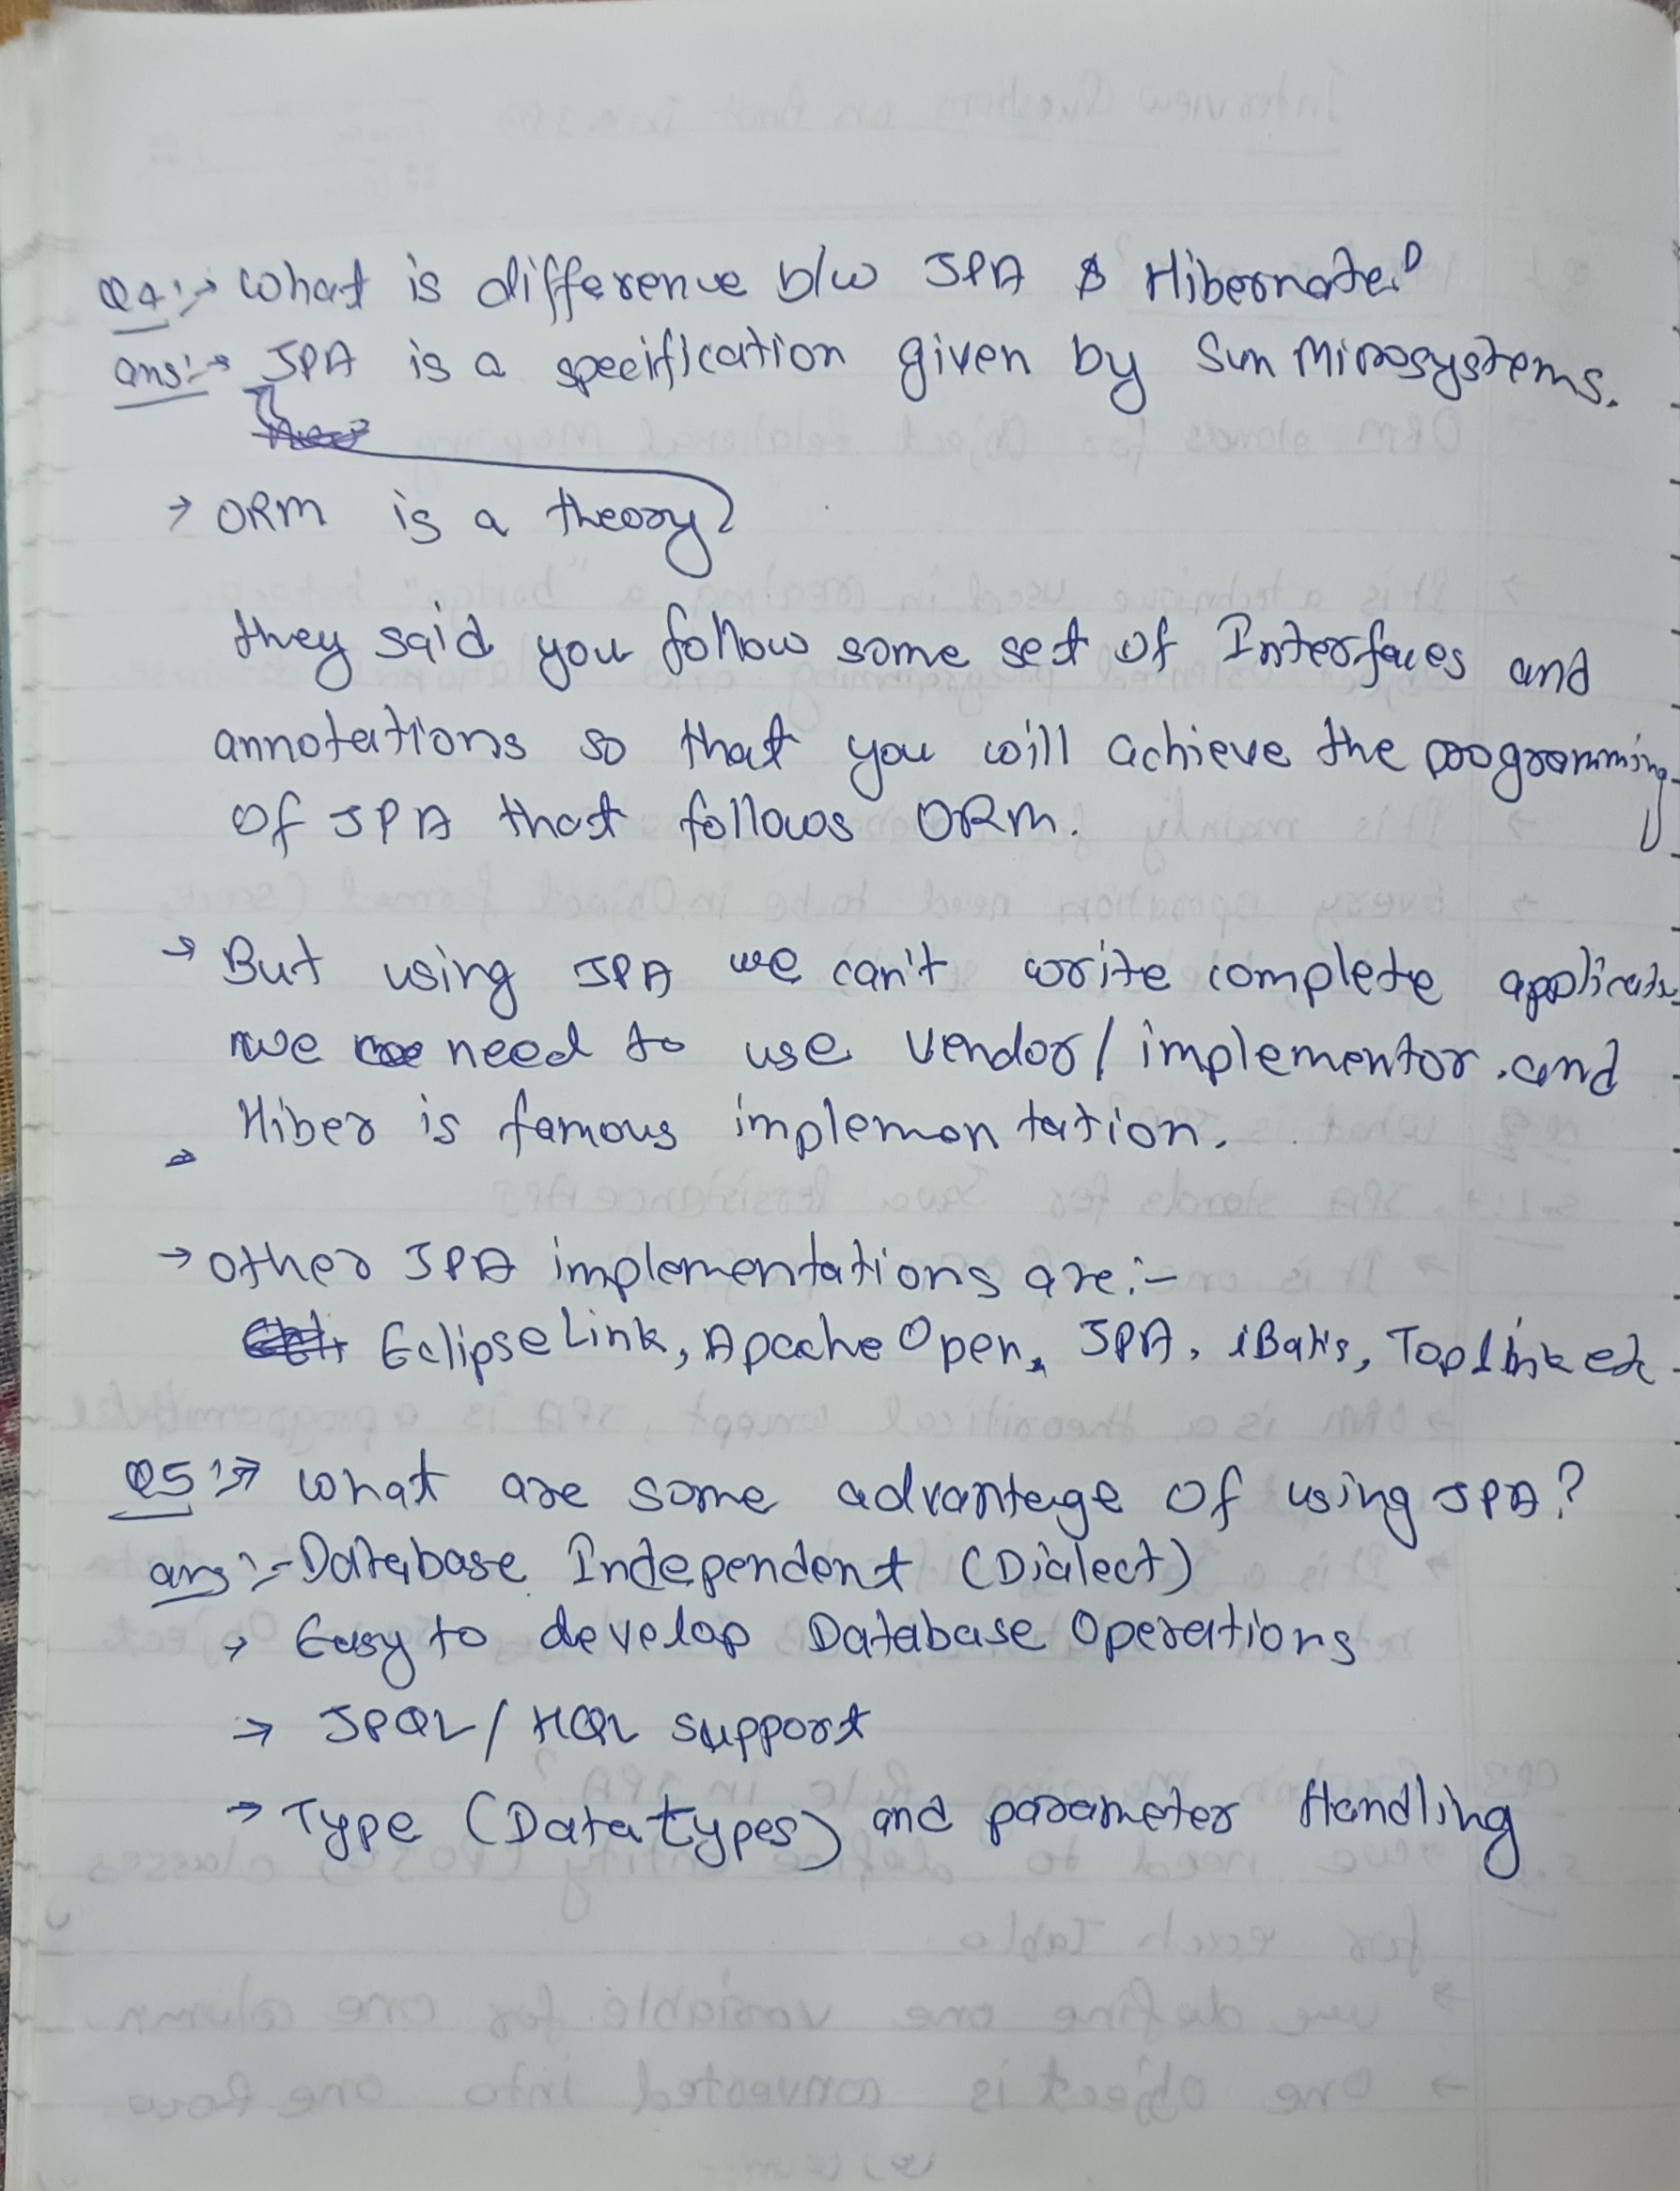 Q4:→ What is difference b/w JPA & Hibernate?
ans:→ JPA is a specification given by Sun Mirosystems.
→ ORM is a theory
they said you follow some set of Interfaces and
annotations so that you will achieve the programming
of JPA that follows ORM.
→ But using JPA we can't write complete applicati
we need to use vendor/implementor.and
Hiber is famous implementation.
→ other JPA implementations are:-
EclipseLink, Apache Open, JPA, iBatis, Toplink etc
Q5:→ What are some advantage of using JPA?
ans:- Database Independent (Dialect)
→ Easy to develop Database Operations
→ JPQL/HQL support
→ Type (Data types) and parameter Handling